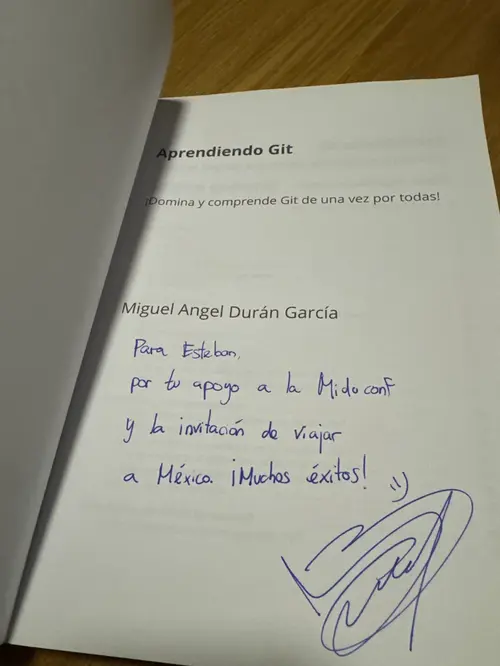 Aprendiendo Git
¡Domina y comprende Git de una vez por todas!
Miguel Angel Durán García
Para Esteban,
por tu apoyo a la Miduconf
y la invitación de viajar
a México. ¡Muchos éxitos! :)